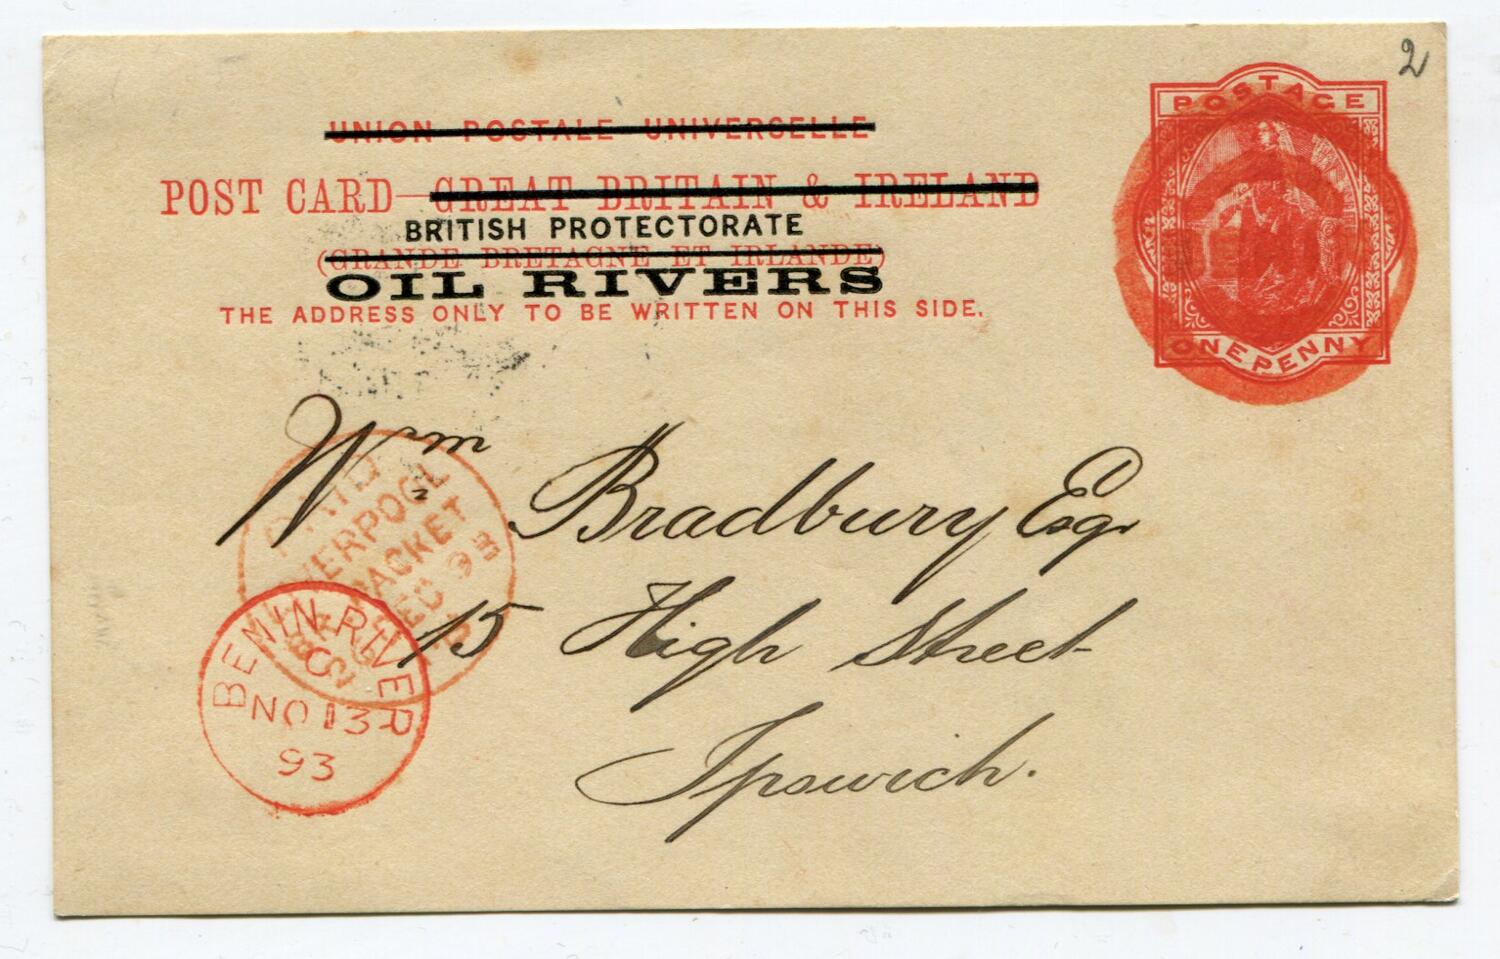 2
POSTAGE
UNION POSTALE UNIVERSELLE
POST CARD—GREAT BRITAIN & IRELAND
BRITISH PROTECTORATE
(GRANDE BRETAGNE ET IRLANDE)
OIL RIVERS
THE ADDRESS ONLY TO BE WRITTEN ON THIS SIDE.
ONE PENNY
Wm Bradbury Esqr
15 High Street
Ipswich.
PAID
LIVERPOOL
PACKET
93
BENIN RIVER
C
NO 13
93